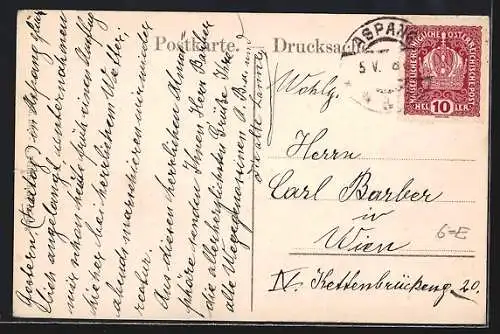 Postkarte.
Drucksache
ASPANG
5 V.
KAISERLICHE KÖNIGLICHE ÖSTERREICHISCHE POST
HEL 10 LER
Wohlg.
Herrn
Carl Barber
in
Wien
IV. Kettenbrückeng 20.
6=E
Gestern (Freitag) in Aspang glück
lich angelangt, unternahmen
wir schon heute früh einen Ausflug
hieher bei herrlichem Wetter.
abends marschieren wir wieder
retour.
Aus dieser herrlichen Atmos
phäre senden Ihnen Herr Barber
die allerherzlichsten Grüße Ihre
alte Weggenossinen A. B. und
die alte